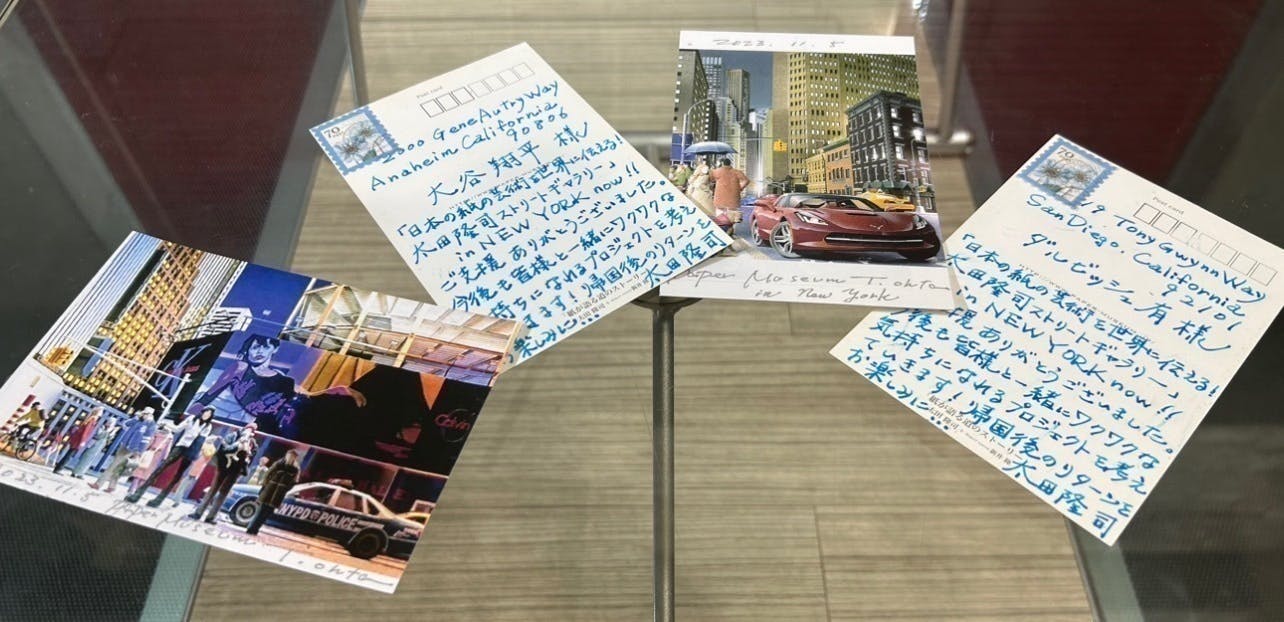 2023. 11. 5
Paper Museum T. ohta
in New York
Post card
70
2000 Gene Autry Way
Anaheim California
90806
大谷 翔平 様
「日本の紙の芸術を世界に伝える!
太田隆司ストリートギャラリー」
in NEW YORK now!!
ご支援 ありがとうございました。
今後も皆様と一緒にワクワクな
気持ちになれるプロジェクトを考え
ていきます!帰国後のリターンを
楽しみに…
太田隆司
紙が語る道のストーリー
Post card
70
19 Tony Gwynn Way
San Diego California
92101
ダルビッシュ 有 様
「日本の紙の芸術を世界に伝える!
太田隆司ストリートギャラリー」
in NEW YORK now!!
ありがとうございました。
今後も皆様と一緒にワクワクな
気持ちになれるプロジェクトを考え
ていきます!!帰国後のリターンを
楽しみに…
太田隆司
紙が語る道のストーリー
CK
Calvin
NYPD POLICE
2023. 11. 5
Paper Museum T. ohta